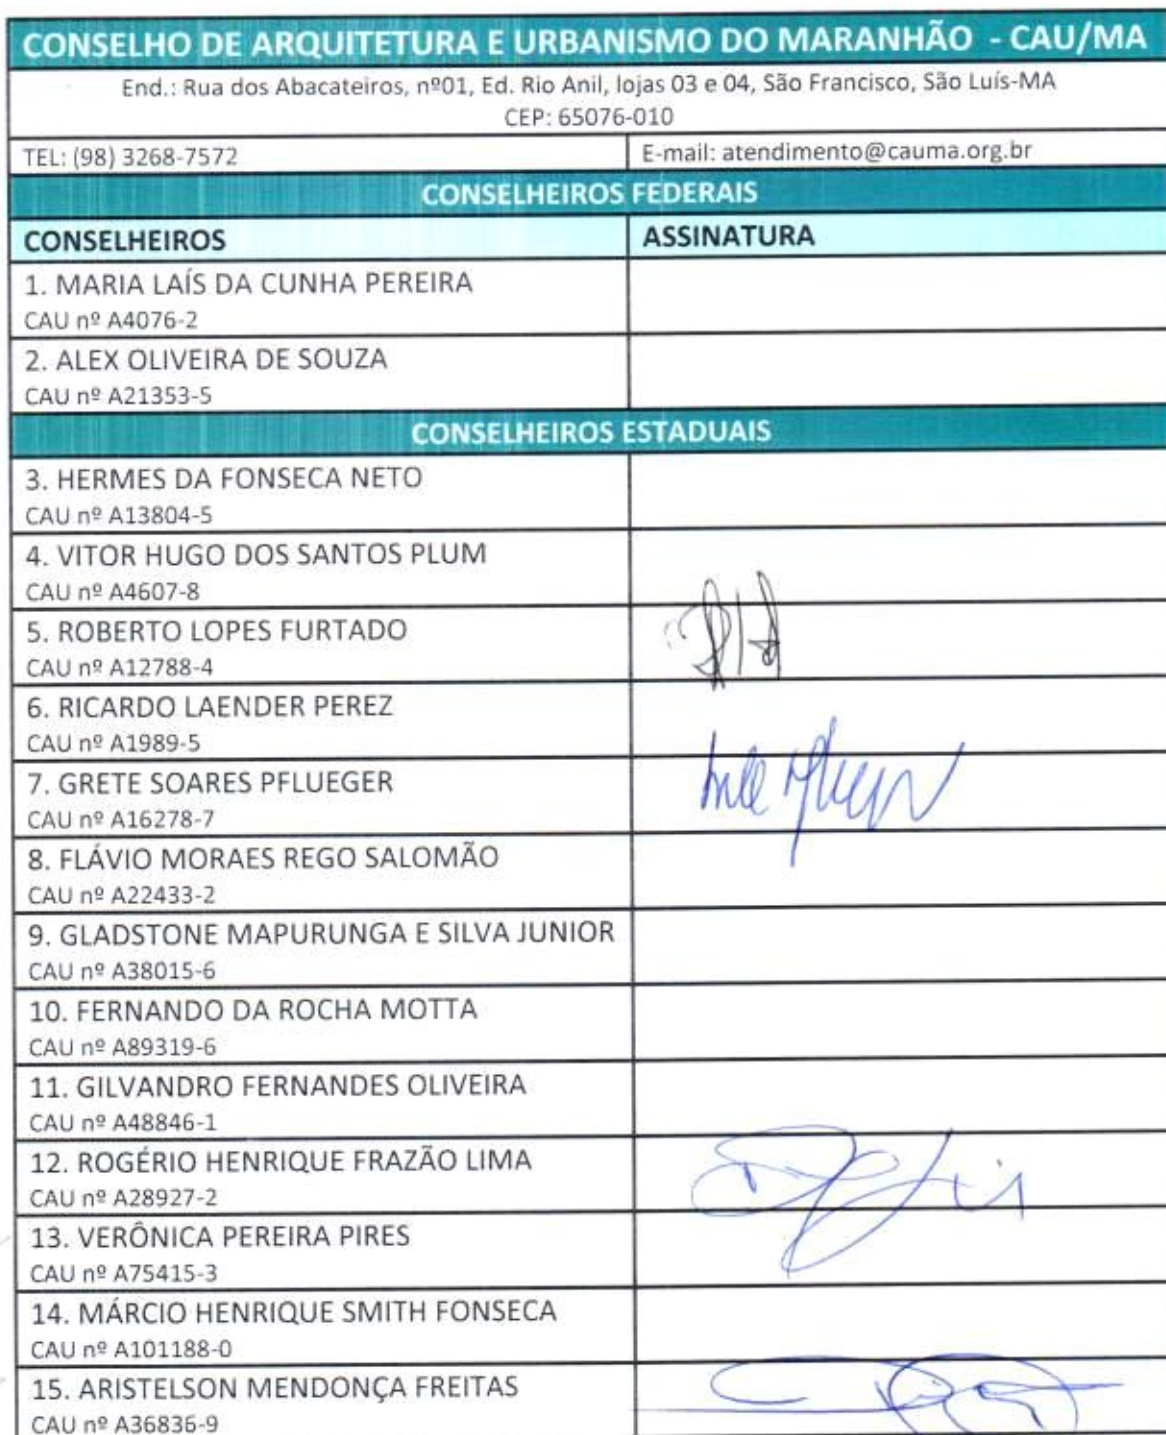 CONSELHO DE ARQUITETURA E URBANISMO DO MARANHÃO - CAU/MA
End.: Rua dos Abacateiros, nº01, Ed. Rio Anil, lojas 03 e 04, São Francisco, São Luís-MA
CEP: 65076-010
TEL: (98) 3268-7572
E-mail: atendimento@cauma.org.br
CONSELHEIROS FEDERAIS
CONSELHEIROS
ASSINATURA
1. MARIA LAÍS DA CUNHA PEREIRA
CAU nº A4076-2
2. ALEX OLIVEIRA DE SOUZA
CAU nº A21353-5
CONSELHEIROS ESTADUAIS
3. HERMES DA FONSECA NETO
CAU nº A13804-5
4. VITOR HUGO DOS SANTOS PLUM
CAU nº A4607-8
5. ROBERTO LOPES FURTADO
CAU nº A12788-4
6. RICARDO LAENDER PEREZ
CAU nº A1989-5
7. GRETE SOARES PFLUEGER
CAU nº A16278-7
8. FLÁVIO MORAES REGO SALOMÃO
CAU nº A22433-2
9. GLADSTONE MAPURUNGA E SILVA JUNIOR
CAU nº A38015-6
10. FERNANDO DA ROCHA MOTTA
CAU nº A89319-6
11. GILVANDRO FERNANDES OLIVEIRA
CAU nº A48846-1
12. ROGÉRIO HENRIQUE FRAZÃO LIMA
CAU nº A28927-2
13. VERÔNICA PEREIRA PIRES
CAU nº A75415-3
14. MÁRCIO HENRIQUE SMITH FONSECA
CAU nº A101188-0
15. ARISTELSON MENDONÇA FREITAS
CAU nº A36836-9